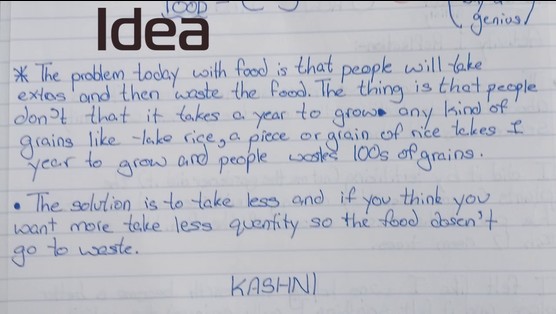 FOOD
genius)
Idea
* The problem today with food is that people will take
extas and then waste the food. The thing is that people
don't that it takes a year to grow any kind of
grains like -lake rice, a piece or grain of rice takes 1
year to grow and people wastes 100s of grains.
• The solution is to take less and if you think you
want more take less quentity so the food doesn't
go to waste.
KASHNI